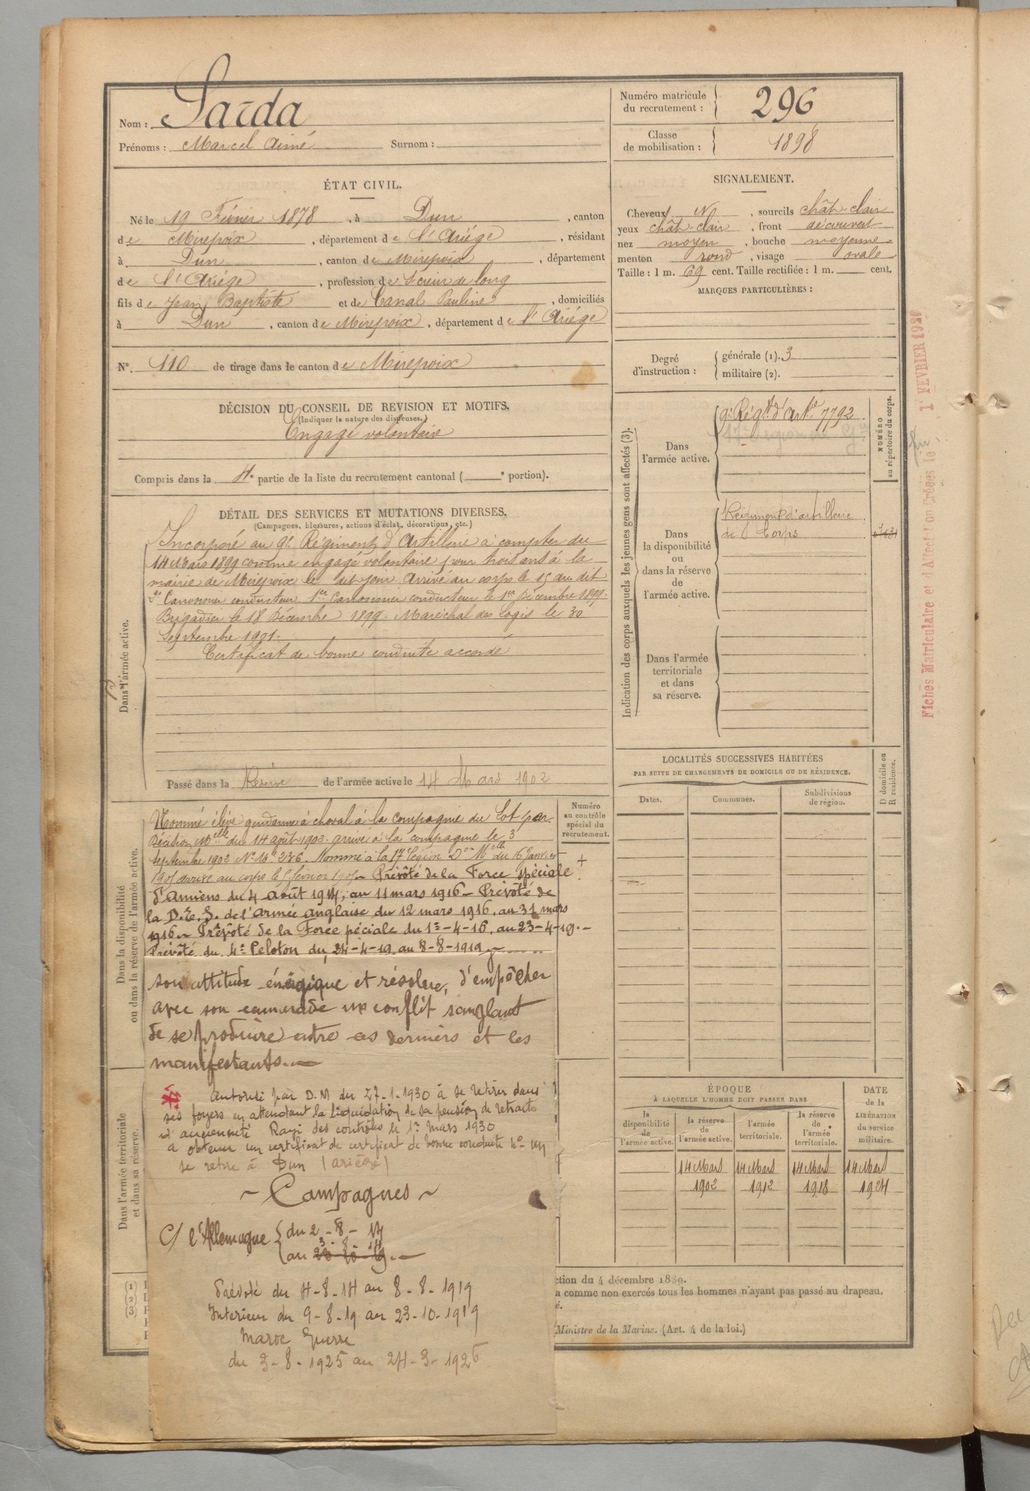 Nom : Sarda
Prénoms : Marcel Aimé Surnom :
Numéro matricule du recrutement : 296
Classe de mobilisation : 1898
ÉTAT CIVIL.
Né le 19 Février 1878, à Dun, canton
de Mirepoix, département de l'Ariége, résidant
à Dun, canton de Mirepoix, département
de l'Ariége, profession de Scieur de long
fils de Jean Baptiste et de Canal Pauline, domiciliés
à Dun, canton de Mirepoix, département de l'Ariége
N°. 110 de tirage dans le canton de Mirepoix
SIGNALEMENT.
Cheveux, sourcils chât-clair
yeux chât-clair, front découvert
nez moyen, bouche moyenne
menton rond, visage ovale
Taille : 1 m. 69 cent. Taille rectifiée : 1 m. cent.
MARQUES PARTICULIÈRES :
Degré d'instruction : générale (1). 3
militaire (2).
DÉCISION DU CONSEIL DE REVISION ET MOTIFS.
(Indiquer la nature des dispenses.)
Engagé volontaire
Compris dans la 4e partie de la liste du recrutement cantonal ( e portion).
DÉTAIL DES SERVICES ET MUTATIONS DIVERSES.
(Campagnes, blessures, actions d'éclat, décorations, etc.)
Dans l'armée active.
Incorporé au 9e Régiment d'Artillerie à compter du
14 Mars 1899 comme engagé volontaire pour trois ans à la
mairie de Mirepoix le dit jour arrivé au corps le 15 du dit
2e Canonnier conducteur 1er Canonnier conducteur le 1er Décembre 1899.
Brigadier le 18 Décembre 1899. Maréchal des logis le 30
Septembre 1901.
Certificat de bonne conduite accordé
Passé dans la Réserve de l'armée active le 14 Mars 1902
Indication des corps auxquels les jeunes gens sont affectés (3).
NUMÉRO au répertoire du corps.
Dans l'armée active. 9e Régt d'Artie 7792
Dans la disponibilité ou dans la réserve de l'armée active.
Régiment d'artillerie
Corps
Dans l'armée territoriale et dans sa réserve.
LOCALITÉS SUCCESSIVES HABITÉES
PAR SUITE DE CHANGEMENTS DE DOMICILE OU DE RÉSIDENCE.
Dates. Communes. Subdivisions de région. D domicile ou R résidence.
Dans la disponibilité ou dans la réserve de l'armée active.
Numéro au contrôle spécial du recrutement.
Nommé élève gendarme à cheval à la compagnie du Lot par
Décision Mlle du 14 août 1902. arrivé à la compagnie le 3
Septembre 1902 Nommé à la 17e Légion Don Mlle du 16 Janvier
Prévôté de la Force spéciale
d'Amiens du 4 août 1914, au 11 mars 1916 - Prévôté de
la D.E.S. de l'Armée anglaise du 12 mars 1916, au 31 mars
1916 - Prévôté de la Force péciale du 1e-4-16, au 23-4-19. -
Prévôté du 4e Peloton du 24-4-19, au 8-8-1919
son attitude énergique et résolue, d'empêcher
avec son camarade un conflit sanglant
de se produire entre ces derniers et les
manifestants.
Autorisé par D.M du 27-1-1930 à se retirer dans
ses foyers en attendant la liquidation de sa pension de retraite
d'ancienneté Rayé des contrôles le 1er mars 1930
a obtenu un certificat de certificat de bonne conduite
se retire à Dun (ariège)
~ Campagnes ~
C/ l'Allemagne du 2-8-14
au
Prévôté du 4-8-14 au 8-8-1919
Interieur du 9-8-19 au 23-10-1919
Maroc Guerre
du 3-8-1925 au 24-3-1926
Dans l'armée territoriale et dans sa réserve.
ÉPOQUE
À LAQUELLE L'HOMME DOIT PASSER DANS
la disponibilité de l'armée active. la réserve de l'armée active. l'armée territoriale. la réserve de l'armée territoriale.
DATE de la LIBÉRATION du service militaire.
14 Mars 1902 14 Mars 1912 14 Mars 1918 14 Mars 1924
ction du 4 décembre 1889.
a comme non exercés tous les hommes n'ayant pas passé au drapeau.
Ministre de la Marine. (Art. 4 de la loi.)
Fiches Matriculaire et d'Affectation Créées le 1 FÉVRIER 1920